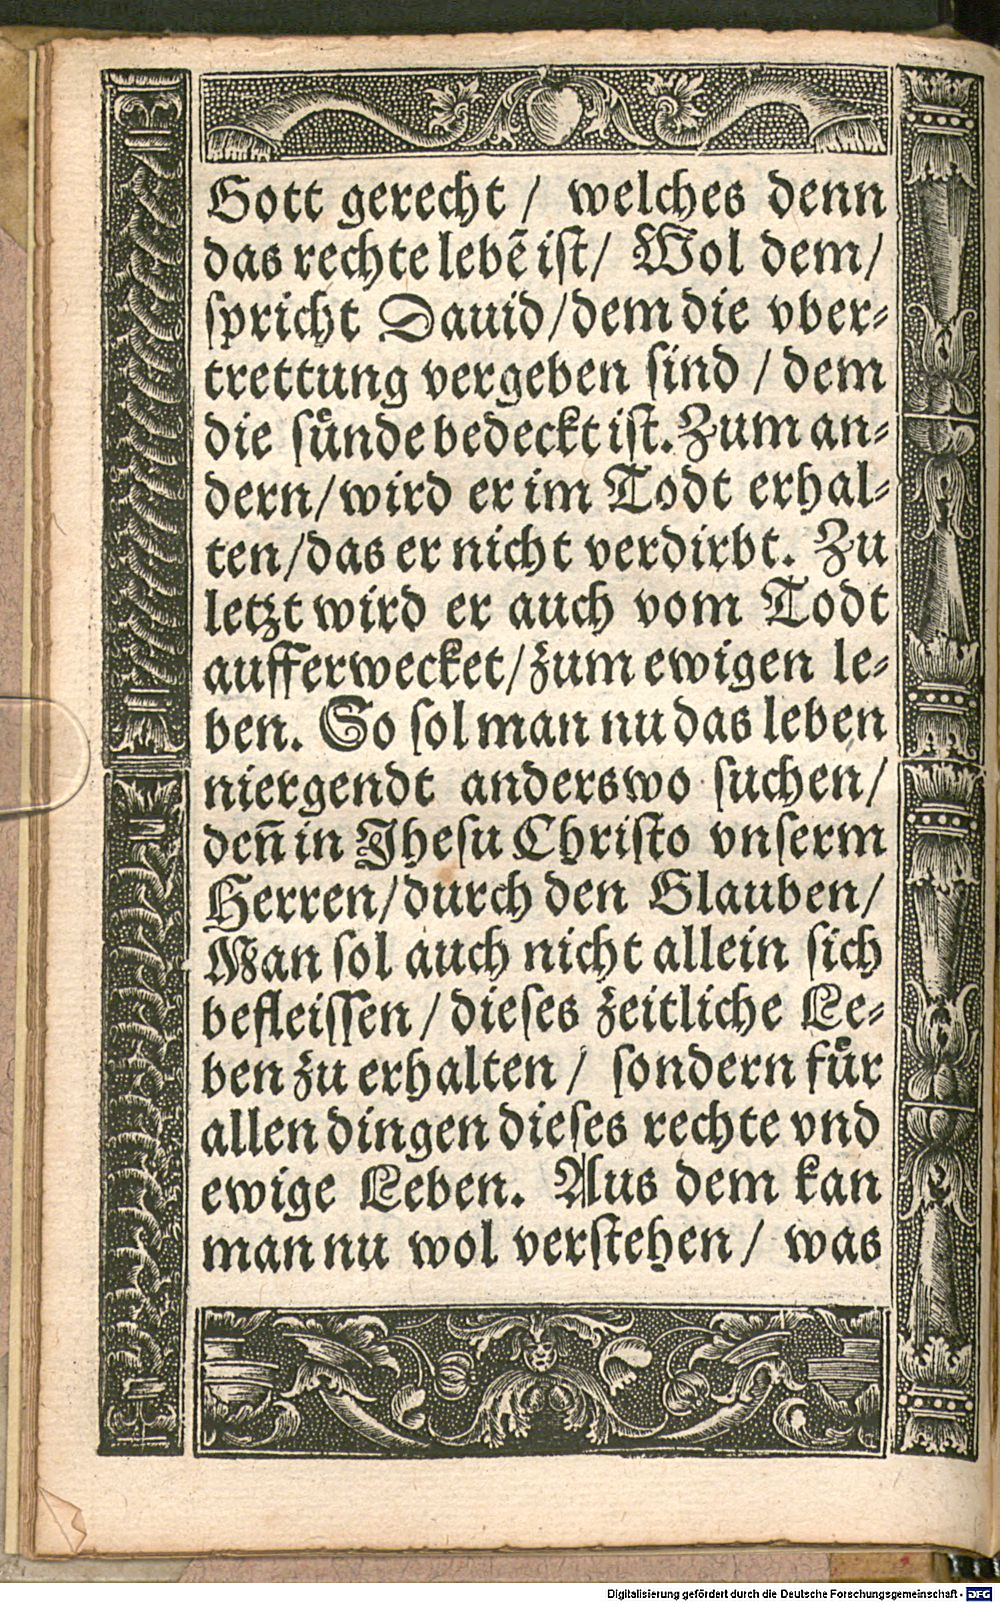 Gott gerecht / welches denn
das rechte lebẽ ist/ Wol dem/
spricht Dauid/dem die vber⸗
trettung vergeben sind / dem
die sünde bedeckt ist. Zum an⸗
dern/wird er im Todt erhal⸗
ten/das er nicht verdirbt. Zu
letzt wird er auch vom Todt
aufferwecket/zum ewigen le⸗
ben. So sol man nu das leben
niergendt anderswo suchen/
den̄ in Jhesu Christo vnserm
Herren/durch den Glauben/
Man sol auch nicht allein sich
befleissen / dieses zeitliche Le⸗
ben zu erhalten / sondern für
allen dingen dieses rechte vnd
ewige Leben. Aus dem kan
man nu wol verstehen / was
Digitalisierung gefördert durch die Deutsche Forschungsgemeinschaft - DFG